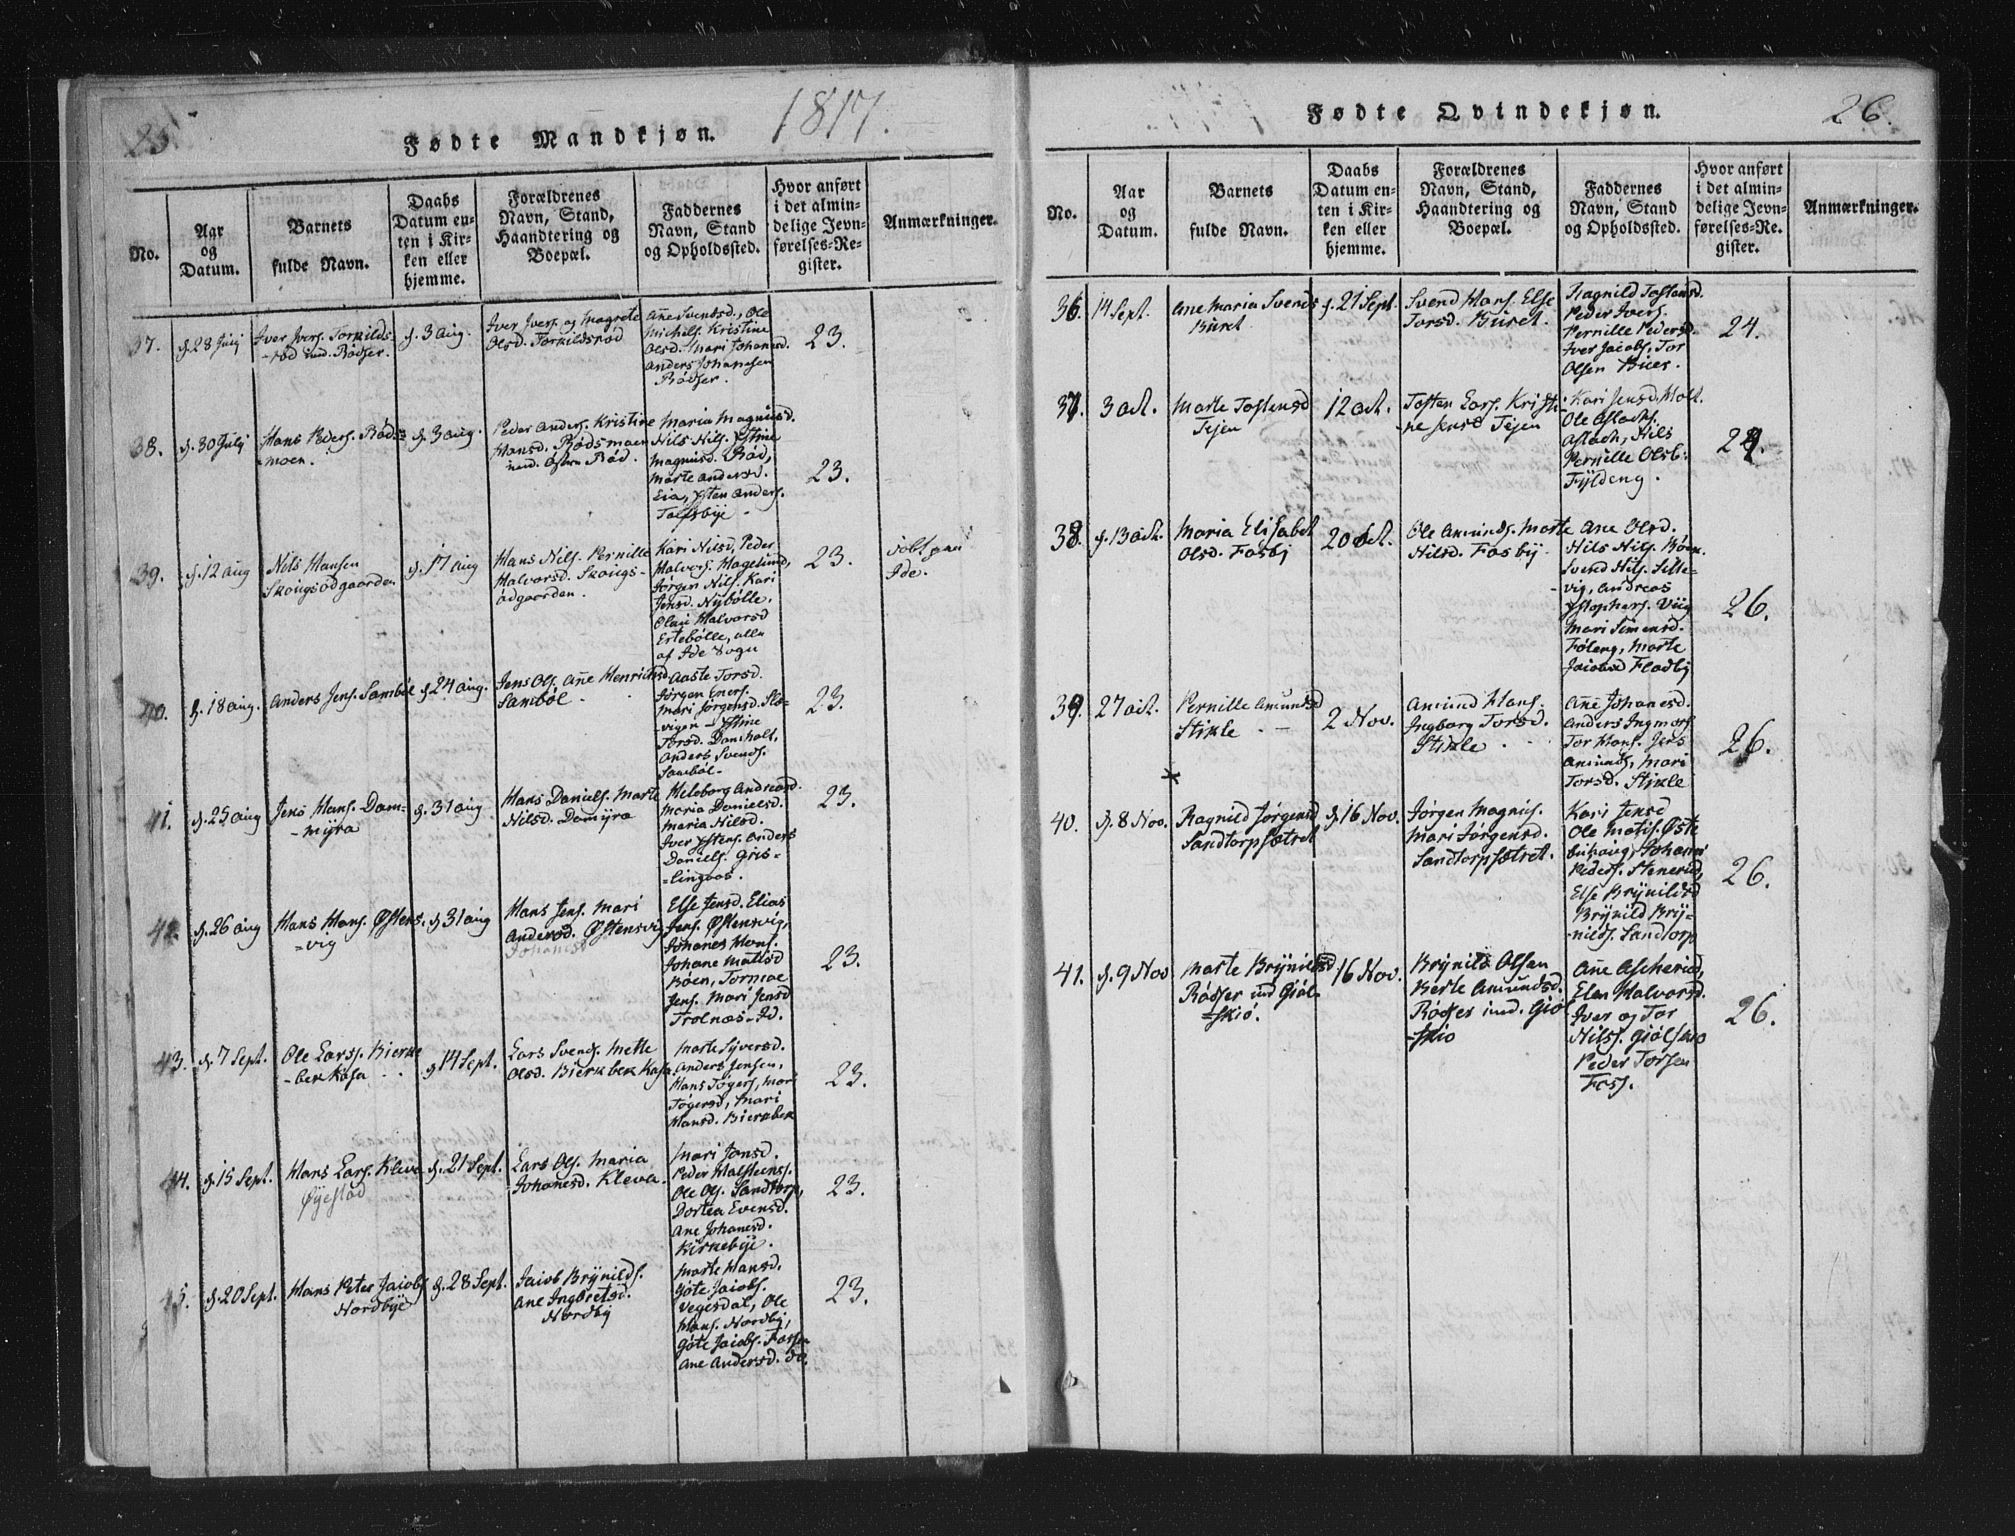 25
Fødte Mandkjøn.
1817.
No.
Aar
og
Datum.
Barnets
fulde Navn.
Daabs
Datum en-
ten i Kir-
ken eller
hjemme.
Forældrenes
Navn, Stand,
Haandtering og
Boepæl.
Faddernes
Navn, Stand
og Opholdssted.
Hvor anført
i det almin-
delige Jevn-
førelses-Re-
gister.
Anmærkninger.
37.
d. 28 Julj
Iver Ivers. Torkilds-
-rød ind. Rødser.
d. 3 aug.
Iver Ivers. og Magrete
Olsd. Torkildsrød
Ane Svendsd., Ole
Michels. Kristine
Olsd. Mari Johanesd.
Anders Johannesen
Rødser.
23.
38.
d. 30 Julj
Hans Peders. Røds-
-moen.
d. 3 aug.
Peder Anders. Kristine
Hansd. Rødsmoen
ind. Østen Rød.
Maria Magnusd.
Nils Nils. Kstine
Magnusd. Rød,
Marte Andersd.
Eia, Ksten Anders.
Tolfsbye -
23.
39.
d. 12 aug
Nils Hansen
Skougsødgaarden
d. 17 aug
Hans Nils. Pernille
Halvorsd. Skougs-
ødgaarden.
Kari Nilsd, Peder
Halvors. Hagelund,
Jørgen Nils. Kari
Jensd. Nybølle,
Olaui Halvorsd
Ertebølle, alle
af Ide Sogn
23.
Ide.
40.
d. 18 aug.
Anders Jens. Sambøl
d. 24 aug.
Jens Ols. Ane Henricksd.
Sambøl -
Aaste Torsd.
Jørgen Eners.
Mari Jørgensd. Sle-
-vigen - Kstine
Torsd. Damholt,
Anders Svends.
Sambøl -
23.
41.
d. 25 aug
Jens Hans. Dam-
-myra
d. 31 aug
Hans Daniels. Marte
Nilsd. Damyra
Hileborg Andreasd.
Maria Danielsd.
Maria Nilsd.
Iver Kstens. Anders
Daniels. Gris-
-lingaas.
23.
42.
d. 26 aug
Hans Hans. Østens-
-vig
d. 31 aug
Hans Jens. Mari
Andersd. Østensvig
Johanesd
Else Jensd. Elias
Jens. Østensvig,
Johanes Hans.
Johane Matisd
Bøen, Tormoe
Jens. Mari Jensd
Trolnæs - Id.
23.
43.
d. 7 Sept.
Ole Larss. Bierke
-bek Kasa
d. 14 Sept.
Lars Svends. Mette
Olsd. Bierkbek Kasa
Marte Syversd.
Anders Jensen,
Hans Tøgers, Mari
Tøgersd, Mari
Hansd. Bierkbek
23.
44.
d. 15 Sept.
Hans Lars. Kleva
Øyestad
d. 21 Sept.
Lars Ols. Maria
Johanesd. Kleva.
Mari Jonsd.
Peder Halsteens.
Ole Ols. Sandtorp,
Dortea Evensd.
Ane Johanesd.
Kirkebye.
23.
45.
d. 20 Sept.
Hans Peter Jacobs.
Nordbye
d. 28 Sept.
Jacob Brynilds.
Ane Ingbretsd.
Nordby
Marte Hansd.
Gøte Jacobs.
Vegesdal, Ole
Hans. Nordby,
Gøte Jacobs. Fossen
Ane Andersd. do.
23.
Fødte Qvindekjøn.
26.
No.
Aar
og
Datum.
Barnets
fulde Navn.
Daabs
Datum en-
ten i Kir-
ken eller
hjemme.
Forældrenes
Navn, Stand,
Haandtering og
Boepæl.
Faddernes
Navn, Stand
og Opholdssted.
Hvor anført
i det almin-
delige Jevn-
førelses-Re-
gister.
Anmærkninger.
36.
14 Sept.
Ane Maria Svends
Buret
d. 21 Sept.
Svend Hans. Else
Torsd. Buret.
Ragnild Tostensd.
Peder Ivers.
Pernille Pedersd.
Iver Jacobs, Tor
Olsen Buer.
24.
37.
3 oct.
Marte Tostensd
Tejen
12 oct.
Tosten Lars. Kristi-
-ne Jensd Tejen
Kari Jensd, Holt.
Ole Aslachs.
Aslach, Nils
Pernille Olsd:
Fyldeng.
24.
38.
d. 13 oct.
Maria Elisabet
Olsd. Fosby
20 oct.
Ole Amunds. Marte
Nilsd. Fosby -
Ane Olsd.
Nils Nils. Bøen.
Svend Nils. Sille-
-vig, Andreas
Kstophers. Viig
Mari Simensd.
Føleng, Marte
Jacobsd Fladby
26.
39.
27 oct.
Pernille Amundsd
Stikle
2 Nov.
Amund Hans.
Ingborg Torsd.
Stikle
Ane Johanesd.
Anders Ingmors.
Tor Hans. Jens
Amunds, Mari
Torsd. Stikle
26.
40.
d. 8 Nov.
Ragnild Jørgensd,
Sandtorpsætret
d. 16 Nov.
Jørgen Magnus.
Mari Jørgensd.
Sandtorpsætret.
Kari Jensd
Ole Matis. Øste
buhaug, Johanes
Peders. Stenerud,
Else Brynildsd
Brynild Bry-
-nilds. Sandtorp
26.
41.
d. 9 Nov
Marte Brynildsd
Rødser ind Giøl-
-skiø.
16 Nov.
Brynild Olsen
Berte Amundsd.
Rødser ind. Giøl
-skiø
Ane Ascherud,
Elen Halvorsd.
Iver og Tor
Nilss. Giølskiø
Peder Torsen
Foss.
26.